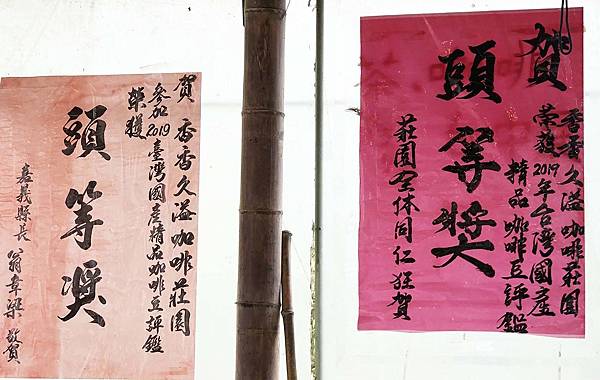 賀 香香久溢咖啡莊園
參加2019臺灣國產精品咖啡豆評鑑
榮獲
頭等獎
嘉義縣長 翁章梁 敬賀
賀
香香久溢咖啡莊園
榮獲2019年台灣國產
精品咖啡豆評鑑
頭等獎
莊園全体同仁狂賀